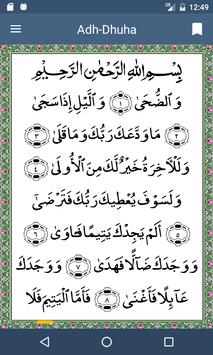 12:49
Adh-Dhuha
بِسْمِ اللَّهِ الرَّحْمَٰنِ الرَّحِيمِ
وَالضُّحَىٰ ١ وَاللَّيْلِ إِذَا سَجَىٰ
٢ مَا وَدَّعَكَ رَبُّكَ وَمَا قَلَىٰ ٣
وَلَلْآخِرَةُ خَيْرٌ لَّكَ مِنَ الْأُولَىٰ ٤
وَلَسَوْفَ يُعْطِيكَ رَبُّكَ فَتَرْضَىٰ
٥ أَلَمْ يَجِدْكَ يَتِيمًا فَآوَىٰ ٦
وَوَجَدَكَ ضَالًّا فَهَدَىٰ ٧ وَوَجَدَكَ
عَائِلًا فَأَغْنَىٰ ٨ فَأَمَّا الْيَتِيمَ فَلَا